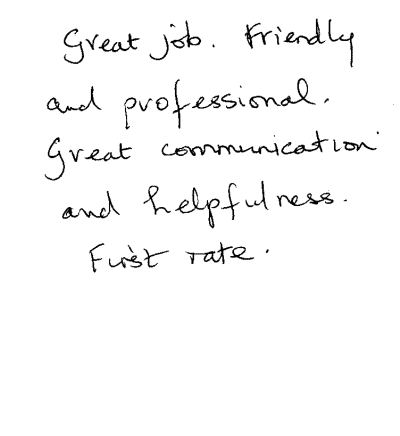 Great job. Friendly
and professional.
Great communication
and helpfulness.
First rate.